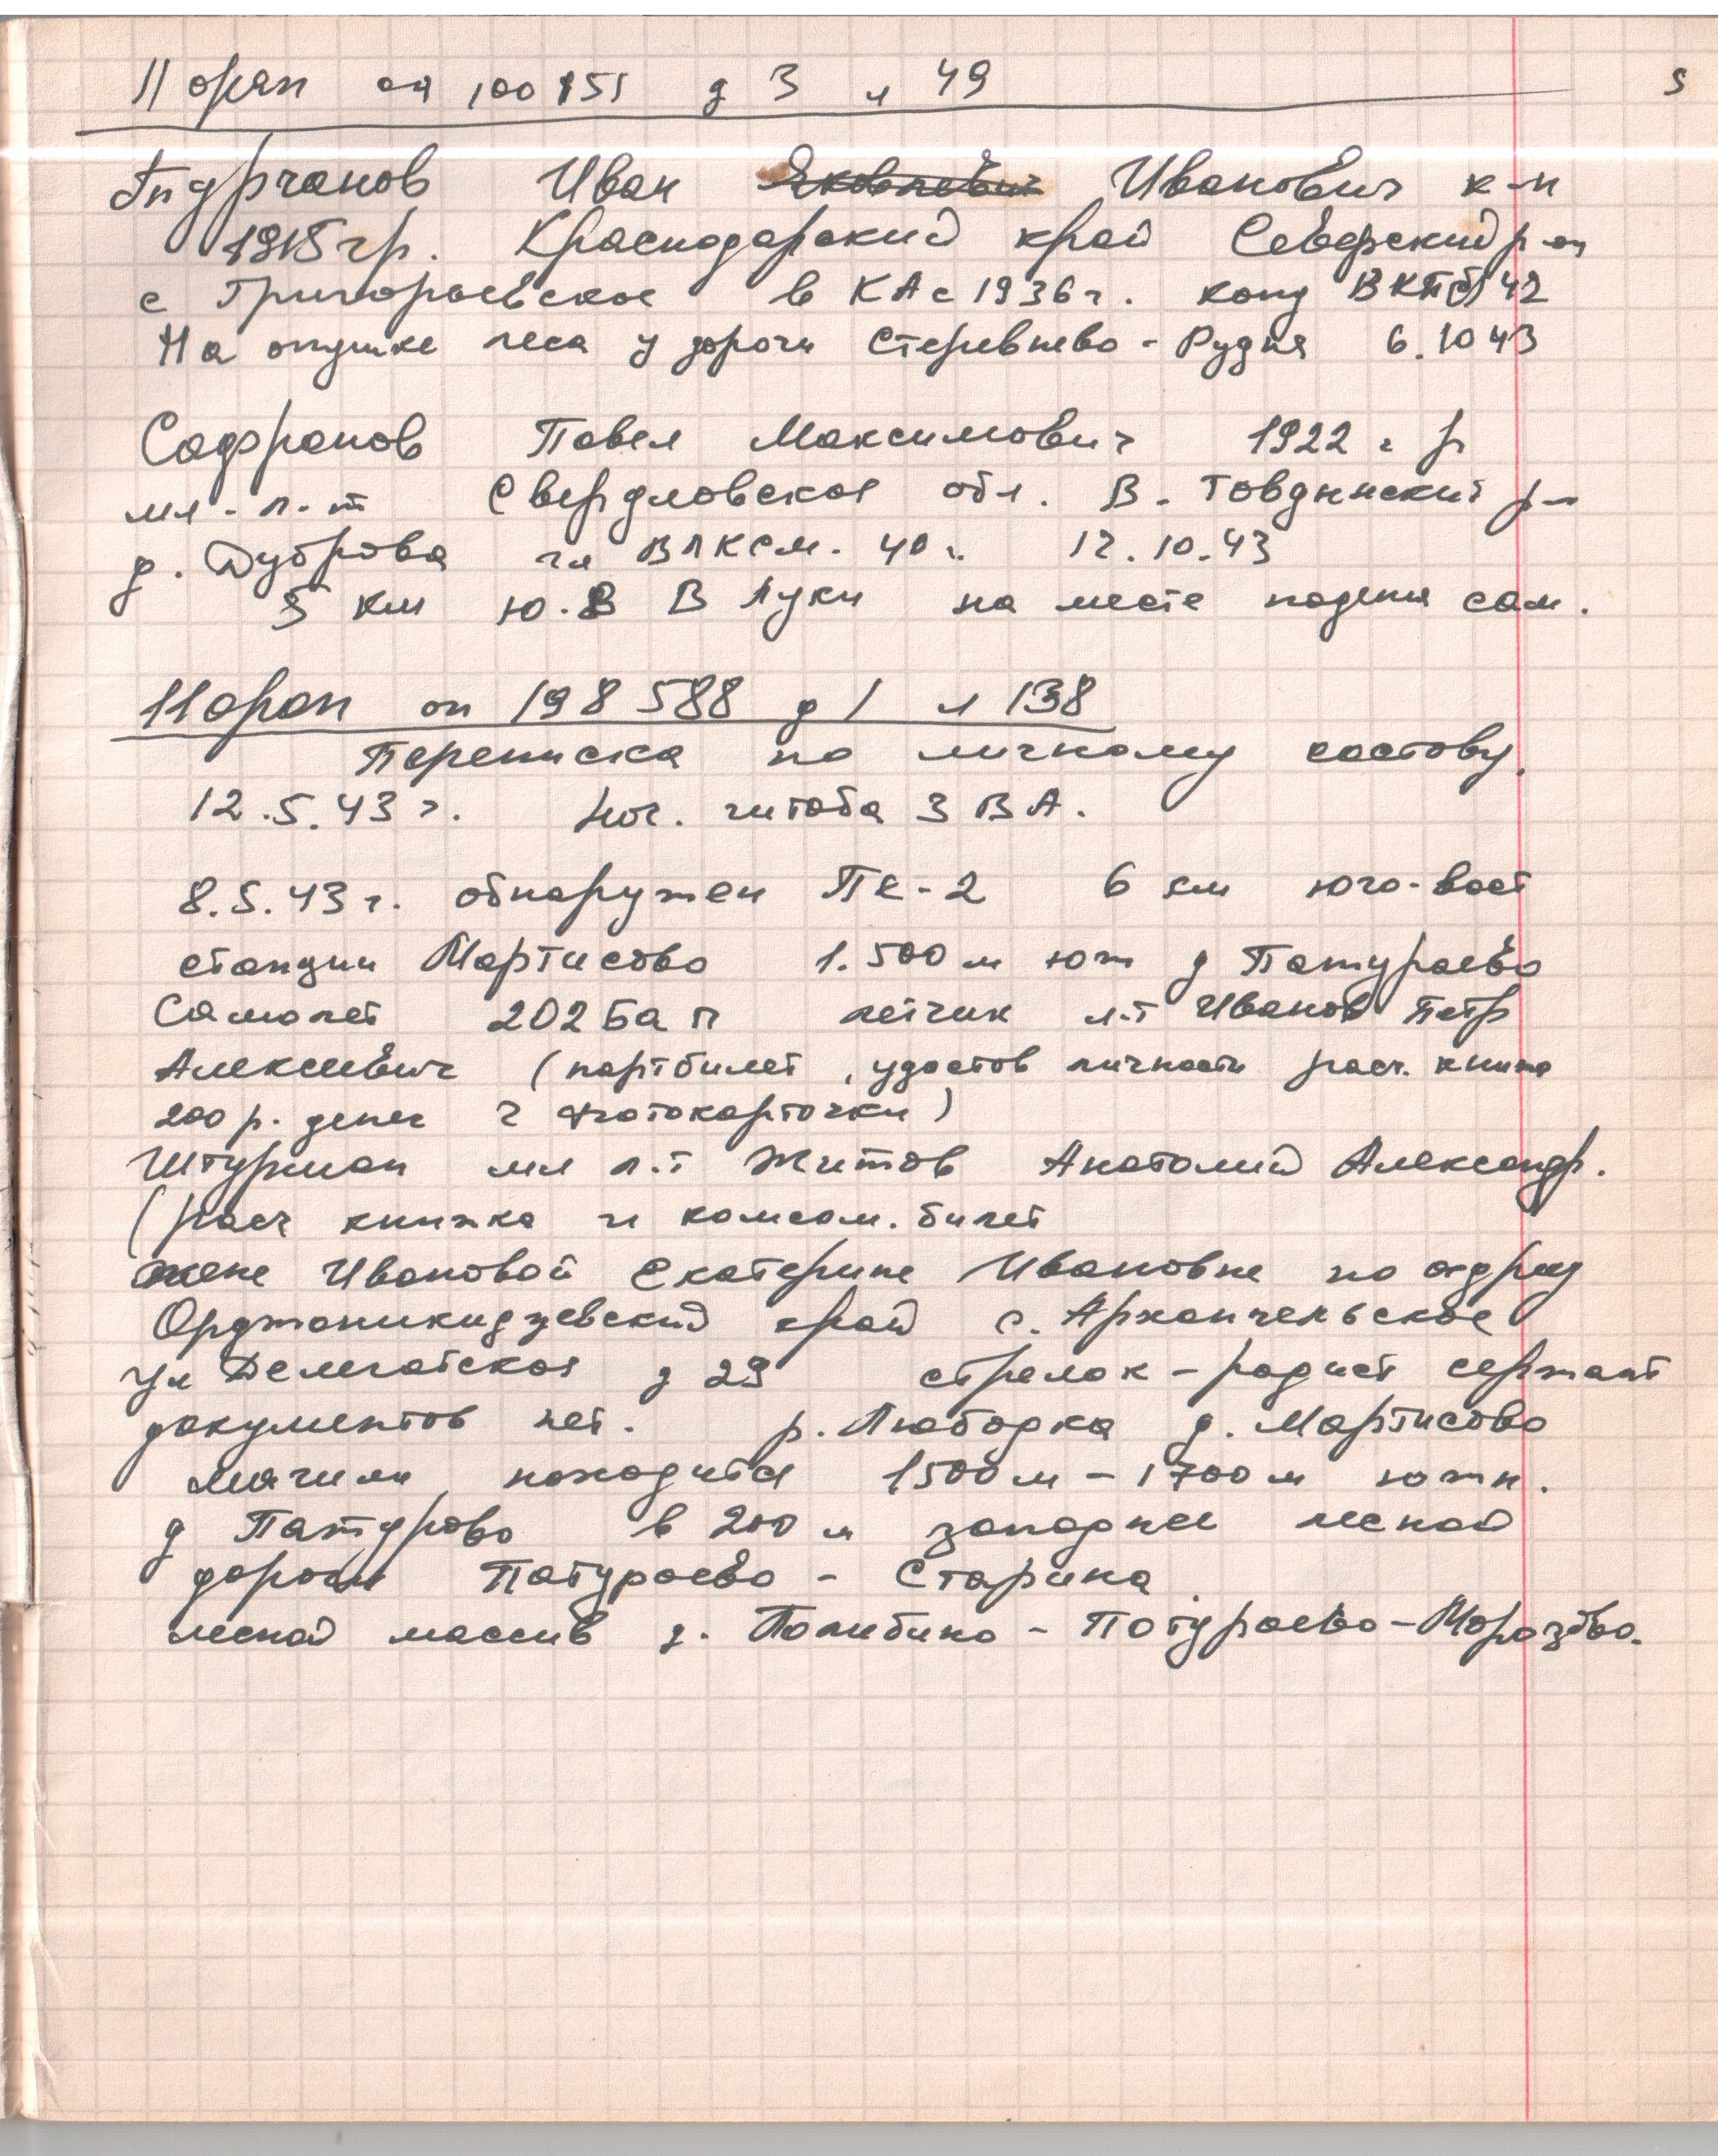 11 орап оп 100155 д 3 л 49
5
Иван Яковлевич Иванович к-н
1915 гр. Краснодарский край Северский р-он
с Григорьевское в КА с 1936 г. канд ВКПб 42
На опушке леса у дороги Стеревнево - Рудня 6.10 43
Сафронов Павел Максимович 1922 г р
мл. л-т Свердловская обл. В. Товдинский р-н
д. Дуброва чл ВЛКСМ. 40 г. 12.10.43
5 км Ю.В В Луки на месте падения сам.
11 орап оп 198588 д 1 л 138
Переписка по личному составу.
12.5.43 г. Нач. штаба 3 ВА.
8.5.43 г. обнаружен Пе-2 6 км юго-вост
станции Мартисово 1.500 м южн д Патураево
Самолет 202 Бап летчик л-т Иванов Петр
Алексеевич (партбилет, удостов личности расч. книжка
200 р. денег 2 фотокарточки)
Штурман мл л-т Житов Анатолий Александр.
(расч книжка и комсом. билет
жене Ивановой Екатерине Ивановне по адресу
Орджоникидзевский край с. Архангельское
ул Делегатская д 29 стрелок-радист сержант
документов нет. р. Любодка д. Мартисово
могила находится 1500 м - 1700 м южн.
д в 200 м западнее лесной
дороги Патураево - Старина
лесной массив д. Полибино - Потураево - Морозово.